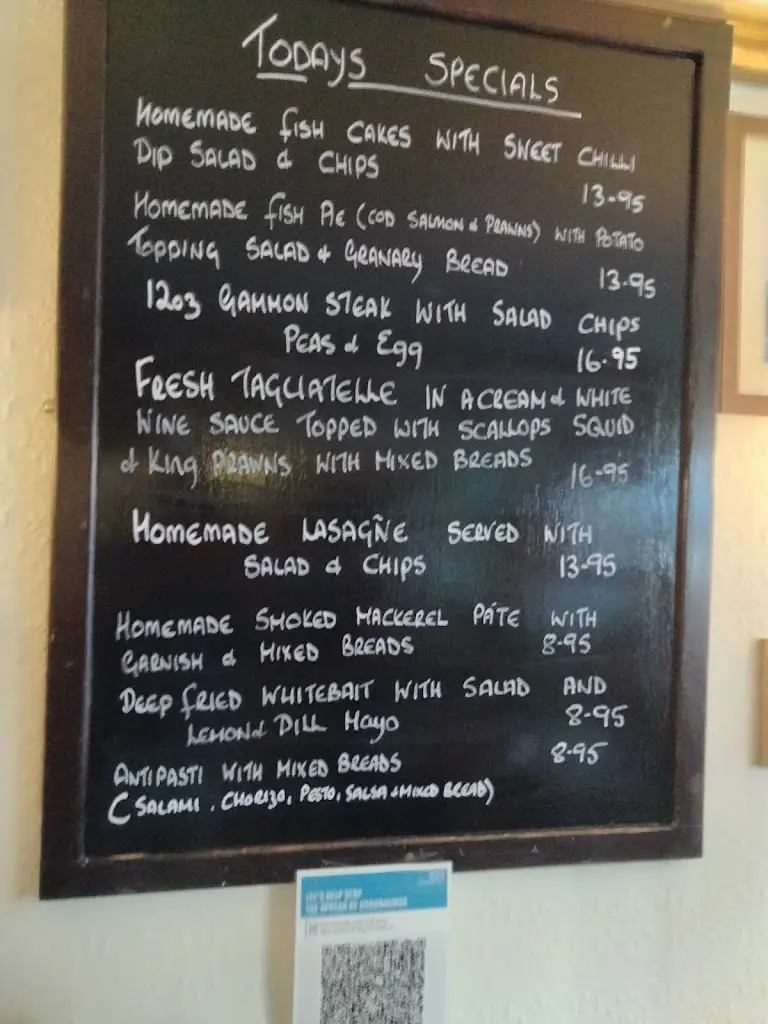 TODAYS SPECIALS
HOMEMADE FISH CAKES WITH SWEET CHILLI
DIP SALAD & CHIPS 13-95
HOMEMADE FISH PIE (COD SALMON & PRAWNS) WITH POTATO
TOPPING SALAD & GRANARY BREAD 13-95
12oz GAMMON STEAK WITH SALAD CHIPS
PEAS & Egg 16-95
FRESH TAGLIATELLE IN A CREAM & WHITE
WINE SAUCE TOPPED WITH SCALLOPS SQUID
& King PRAWNS WITH MIXED BREADS 16-95
HOMEMADE LASAGÑE SERVED WITH
SALAD & CHIPS 13-95
HOMEMADE SMOKED MACKEREL PÁTE WITH
GARNISH & MIXED BREADS 8-95
DEEP FRIED WHITEBAIT WITH SALAD AND
LEMON & DILL MAYO 8-95
ANTIPASTI WITH MIXED BREADS 8-95
(SALAMI, CHORIZO, PESTO, SALSA & MIXED BREAD)
LET'S HELP STOP
THE SPREAD OF CORONAVIRUS